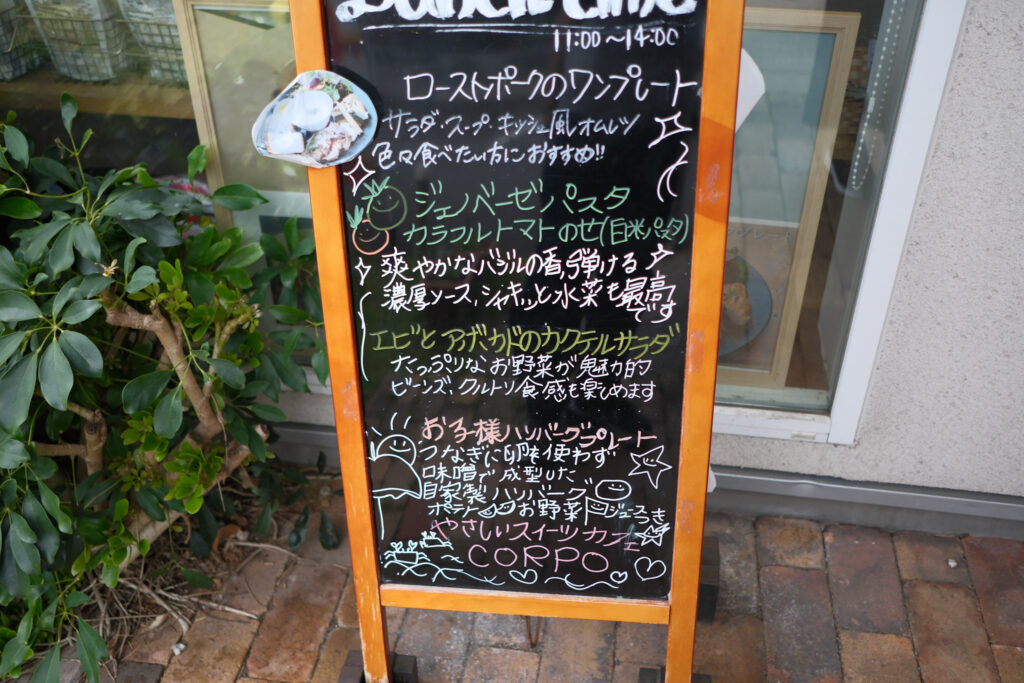 Lunch time
11:00～14:00
ローストポークのワンプレート
サラダ・スープ・キッシュ風オムレツ
色々食べたい方におすすめ!!
ジェノベーゼパスタ
カラフルトマトのせ(白米パスタ)
爽やかなバジルの香り、弾ける
濃厚ソース、シャキッと水菜も最高
です
エビとアボカドのカクテルサラダ
たっぷりなお野菜が魅力的
ビーンズ、クルトン食感も楽しめます
お子様ハンバーグプレート
つなぎに卵を使わず
味噌で成型した
自家製ハンバーグ
ポテト お野菜 ジュースつき
やさしいスイーツカフェ
CORPO